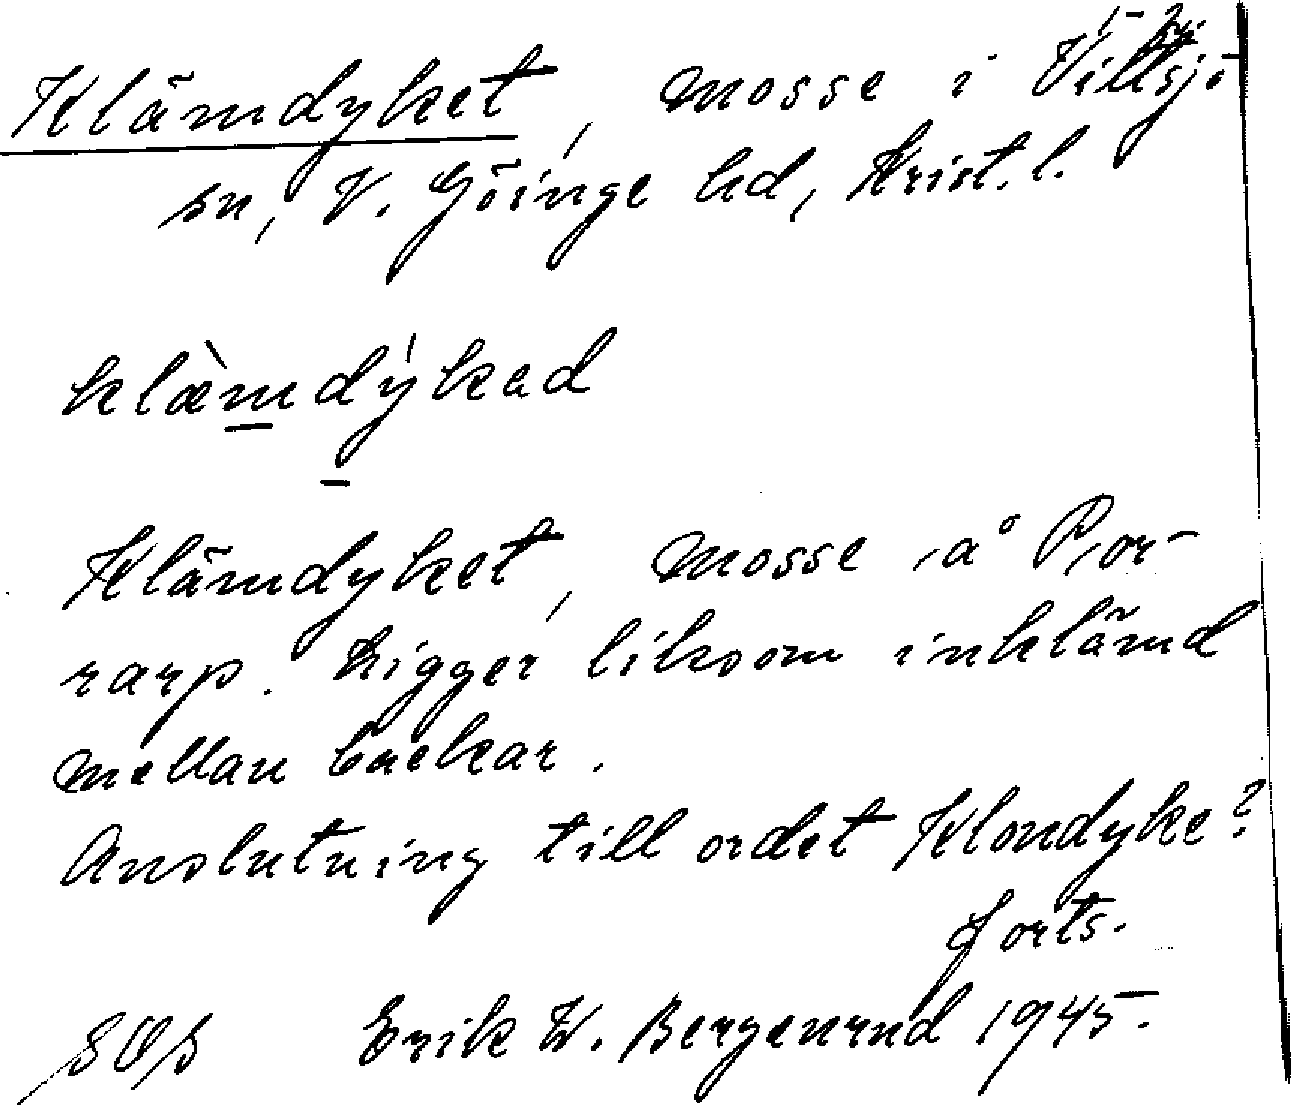 Klämdyket, mosse i Vittsjö
sn, V. Göinge hd, Krist. l.
klæ̀mdýkad
Klämdyket, mosse å Por-
rarp. Ligger liksom inklämd
mellan backar.
Anslutning till ordet Klondyke?
forts.
SOS Erik W. Bergenrud 1945.